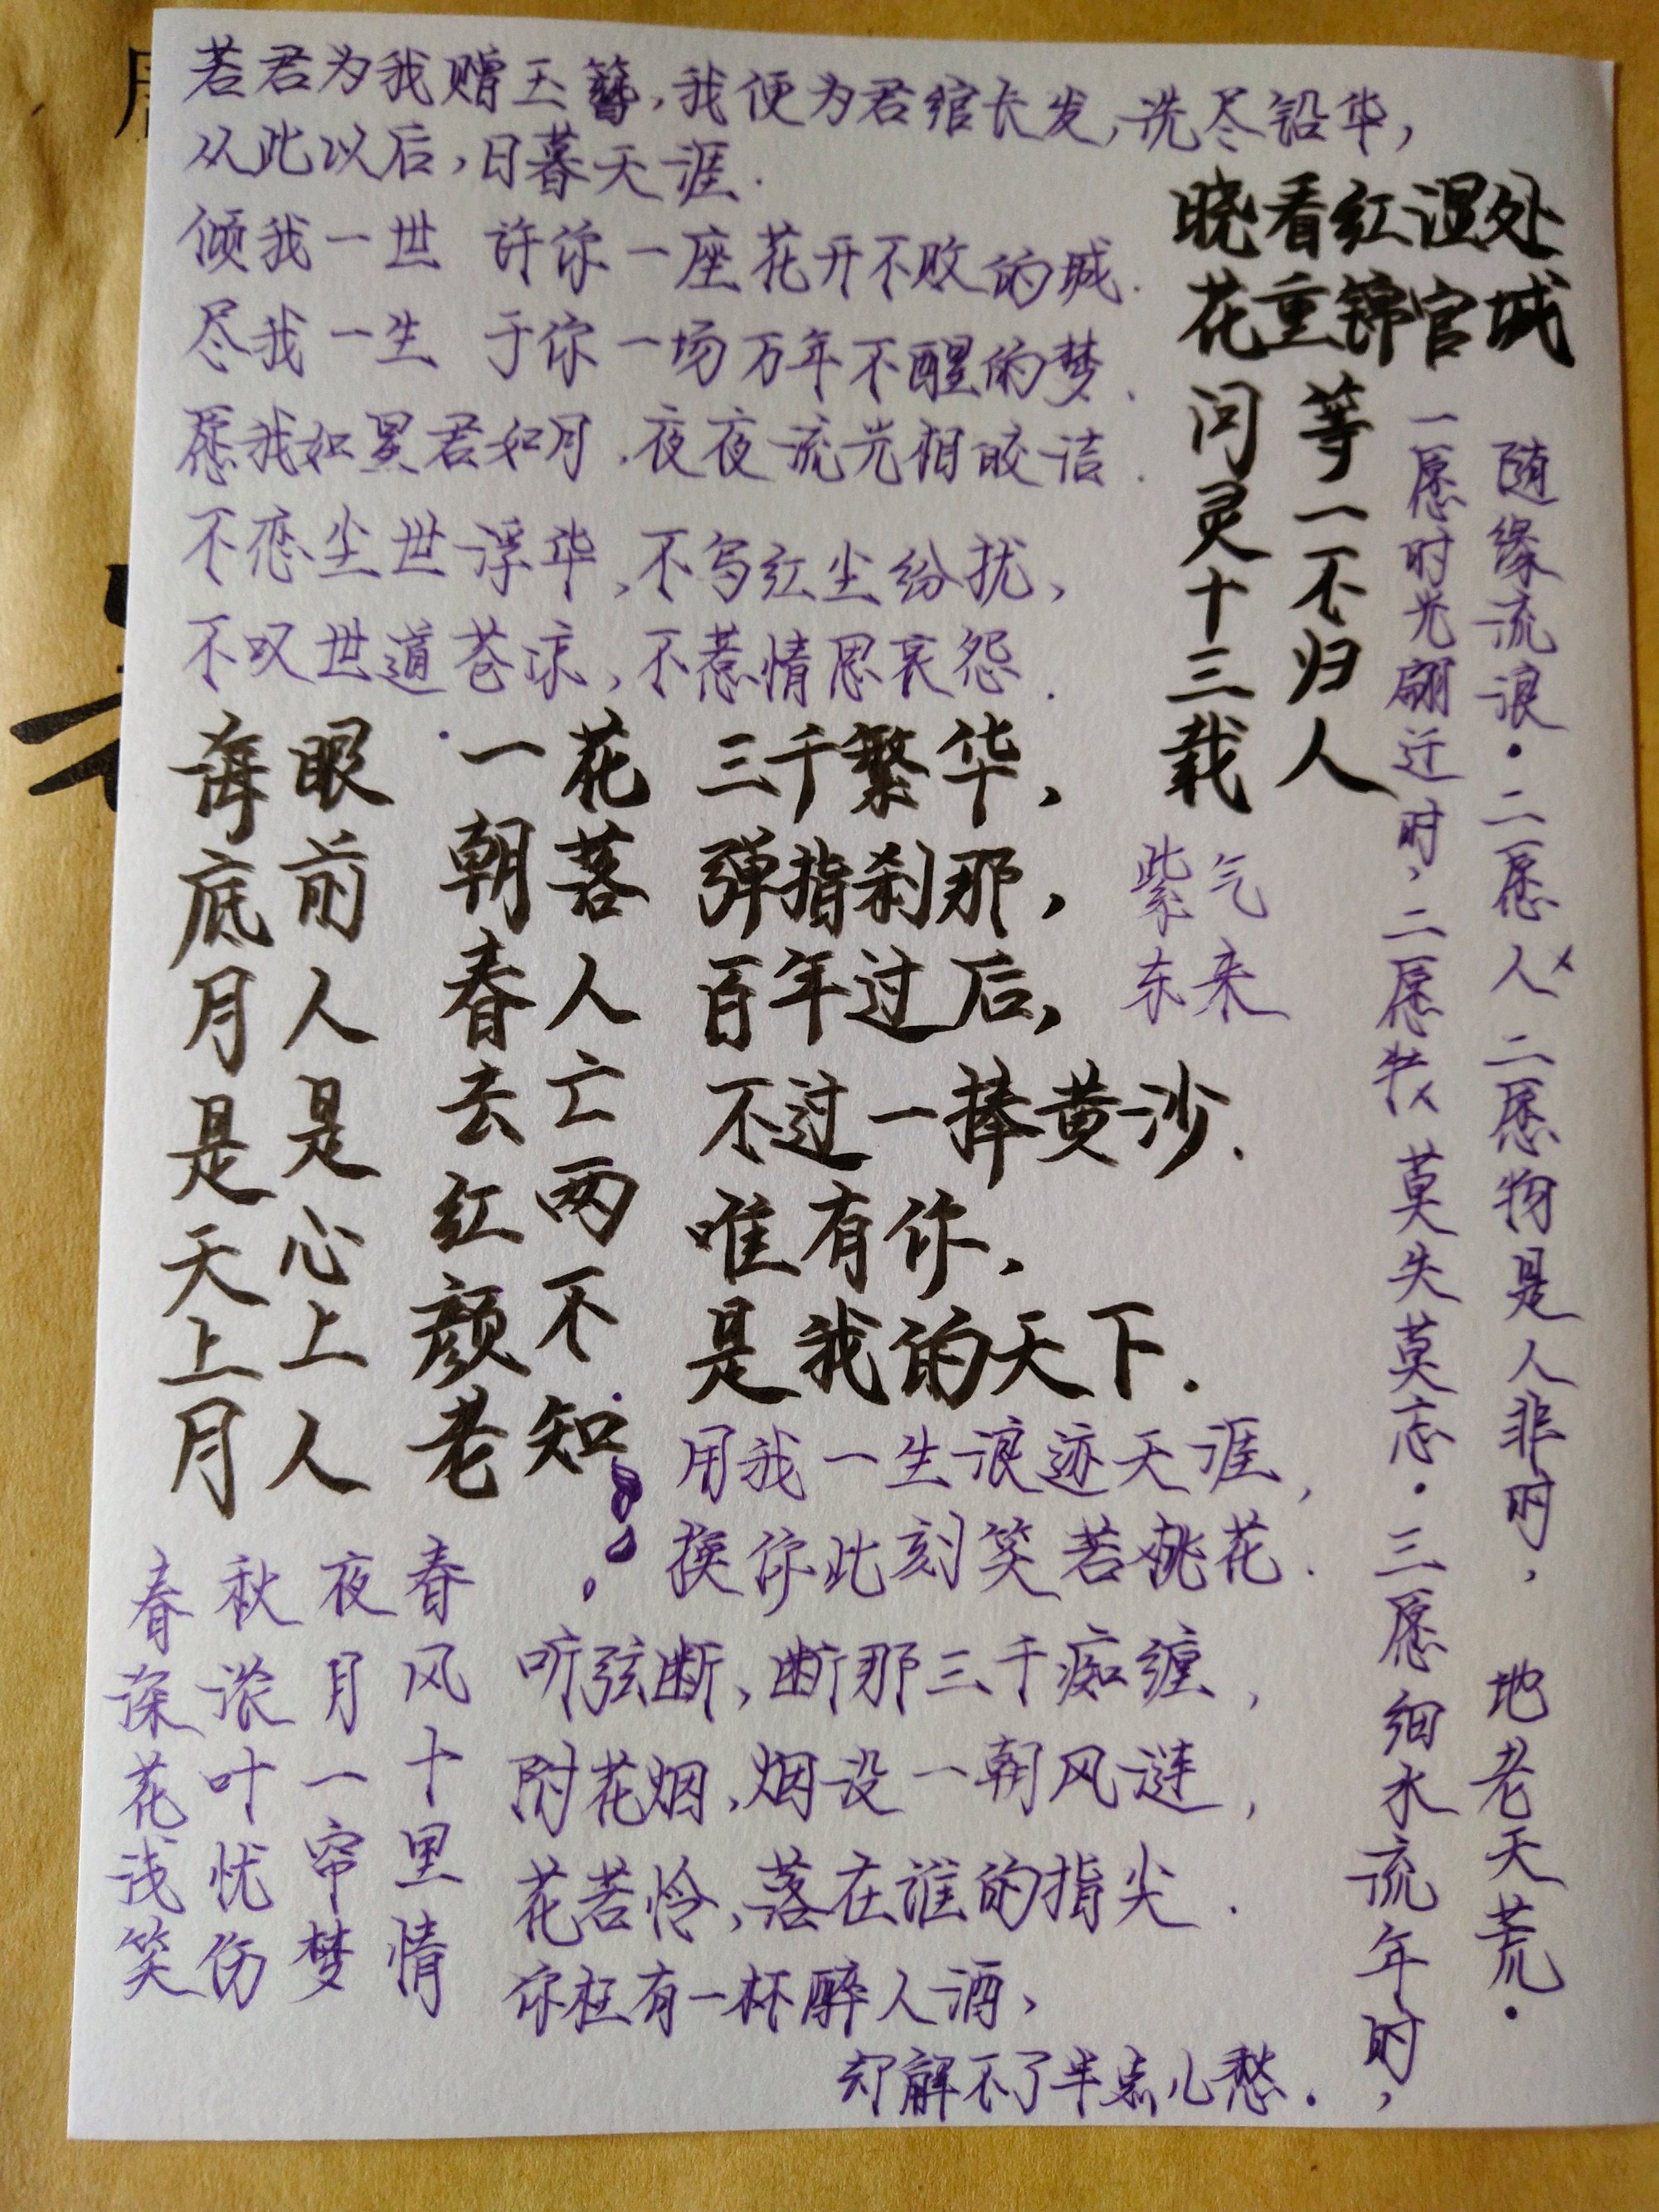 若君为我赠玉簪,我便为君绾长发,洗尽铅华,
从此以后,日暮天涯.
倾我一世 许你一座花开不败的城.
尽我一生 于你一场万年不醒的梦.
愿我如星君如月,夜夜流光相皎洁.
不恋尘世浮华,不写红尘纷扰,
不叹世道苍凉,不惹情思哀怨.
晓看红湿处
花重锦官城
问灵十三载
等一不归人
一愿时光翩迁时,
随缘流浪.
二愿
莫失莫忘.
二愿人
二愿物是人非时,
三愿细水流年时,
地老天荒.
海底月是天上月
眼前人是心上人
一朝春去红颜老
花落人亡两不知
三千繁华,
弹指刹那,
百年过后,
不过一捧黄沙.
唯有你,
是我的天下.
紫气
东来
用我一生浪迹天涯,
换你此刻笑若桃花.
春深花浅笑
秋浓叶忧伤
夜月一帘梦
春风十里情
听弦断,断那三千痴缠,
附花烟,烟没一朝风涟,
花若怜,落在谁的指尖.
你枉有一杯醉人酒,
却解不了半点儿愁.